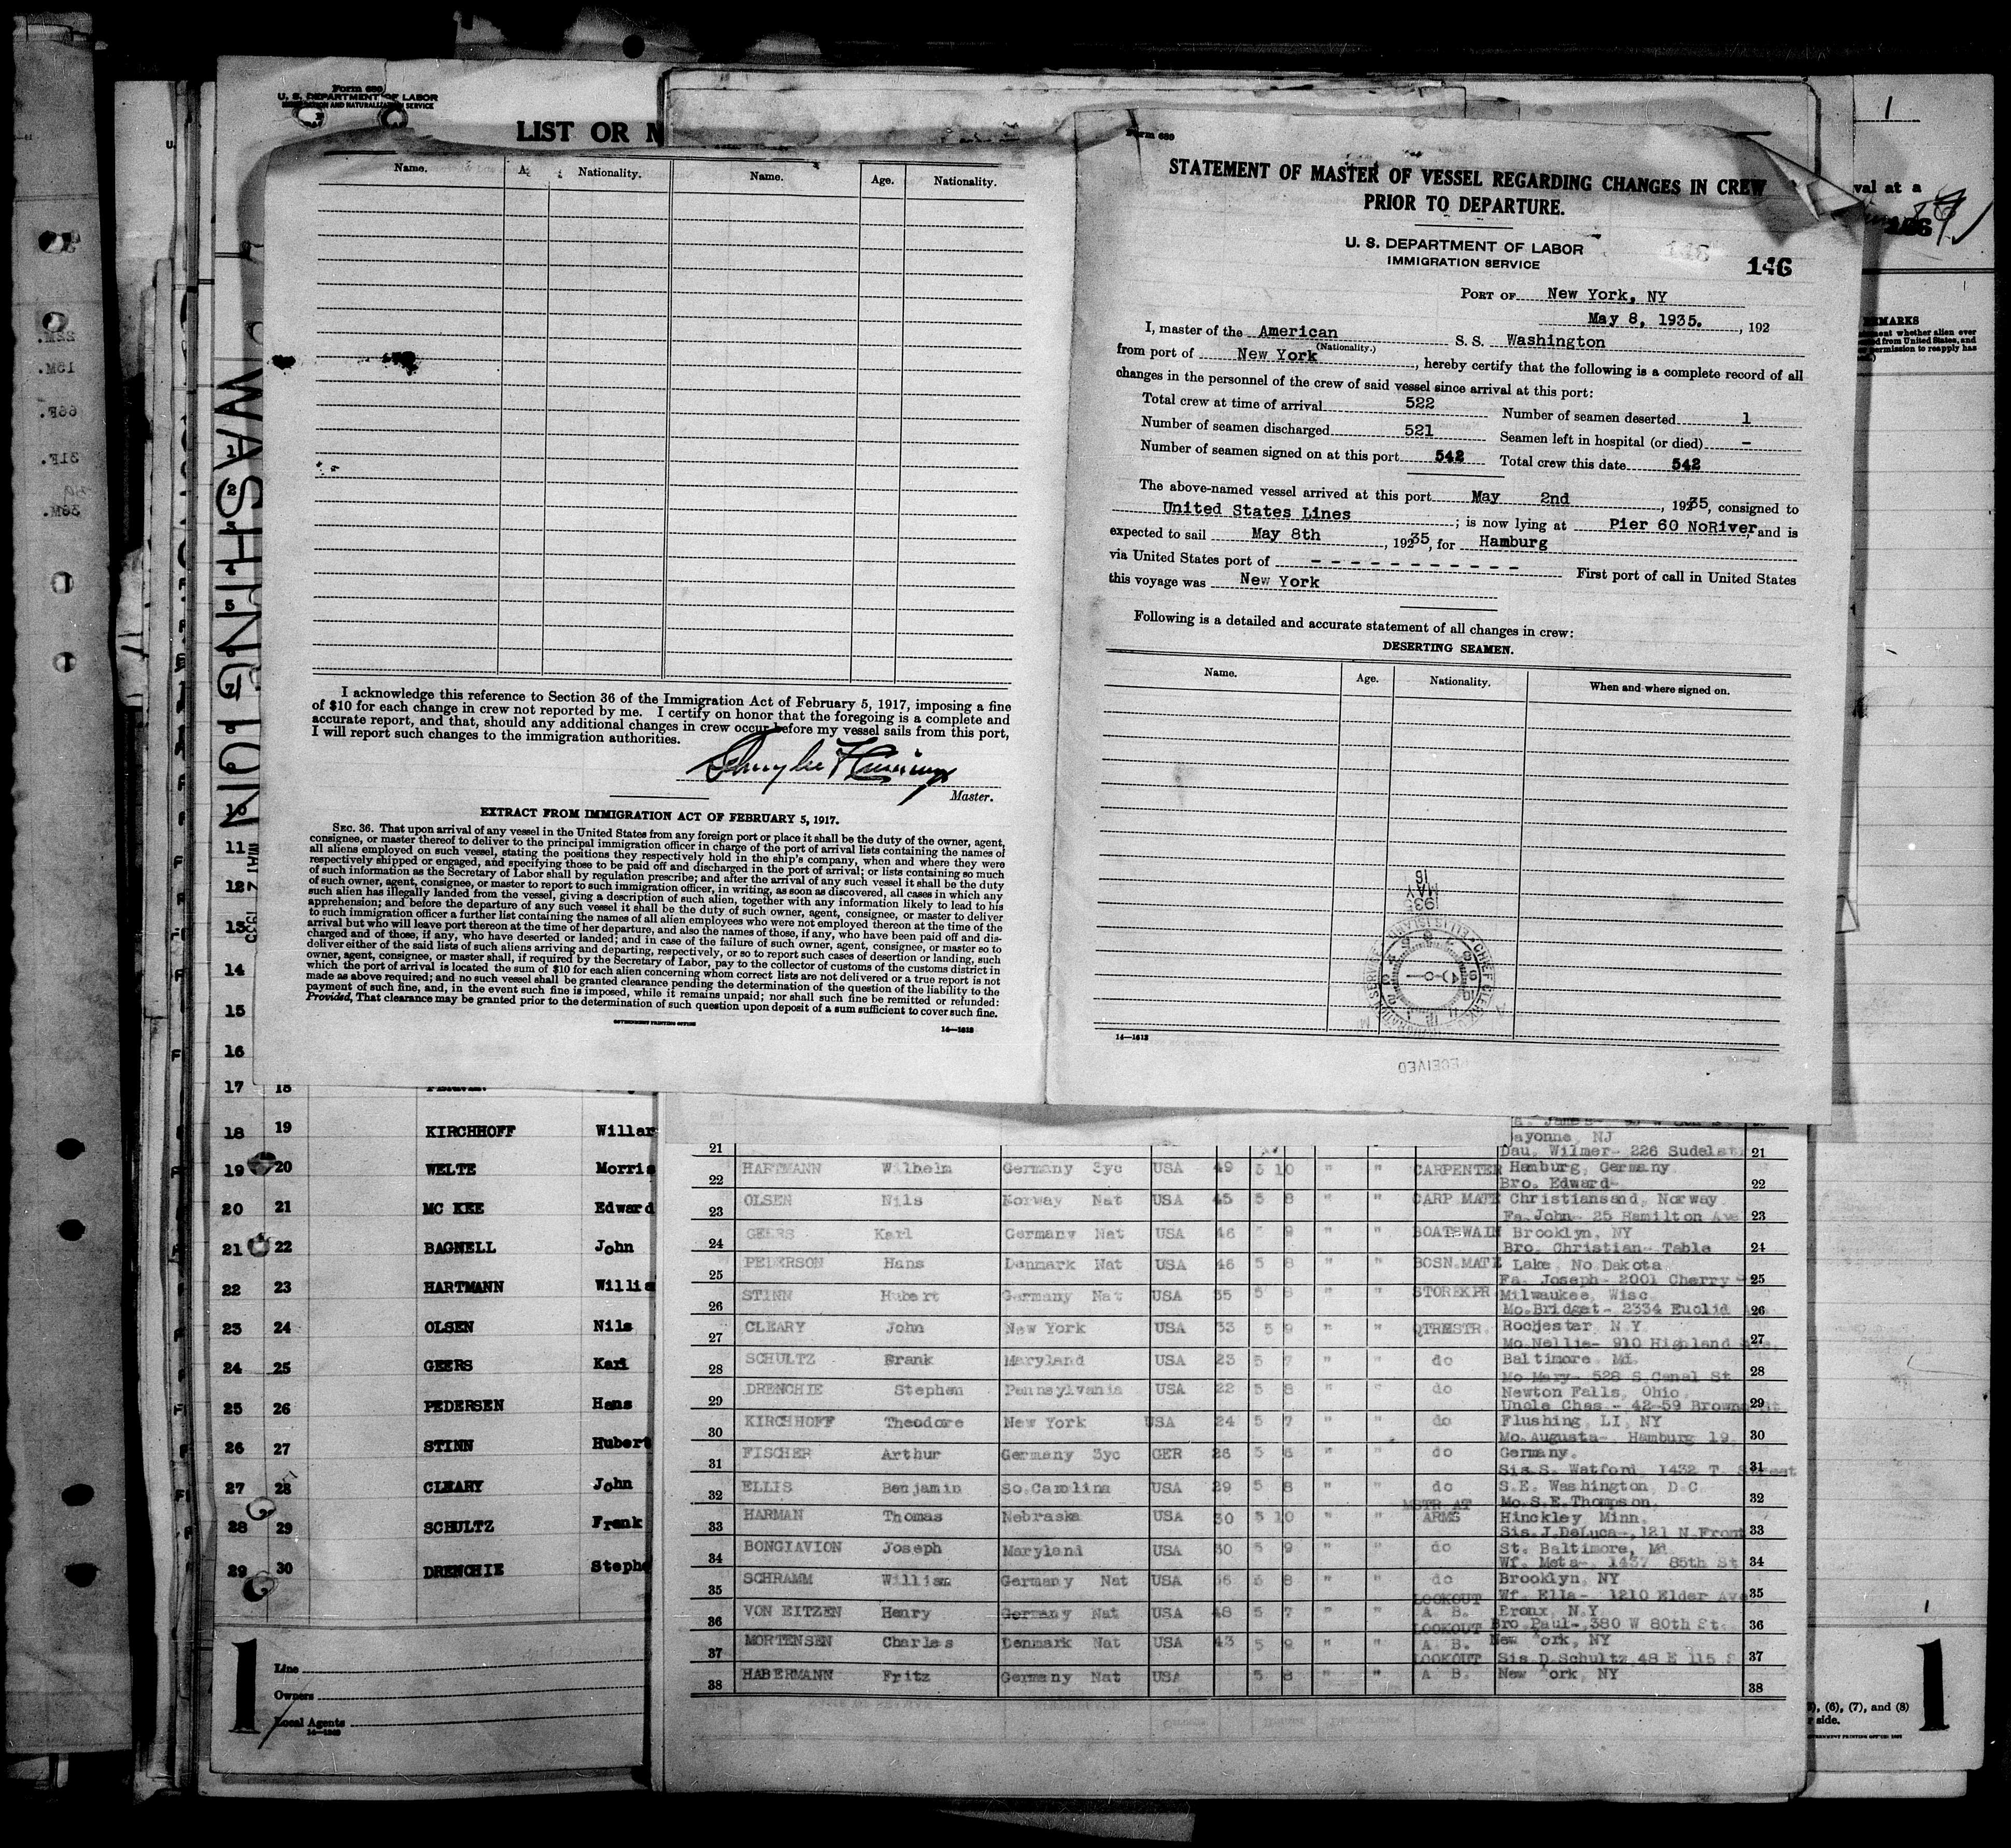 Form 689
U. S. DEPARTMENT OF LABOR
IMMIGRATION AND NATURALIZATION SERVICE
LIST OR
Name. Nationality. Name. Age. Nationality.
I acknowledge this reference to Section 36 of the Immigration Act of February 5, 1917, imposing a fine
of $10 for each change in crew not reported by me. I certify on honor that the foregoing is a complete and
accurate report, and that, should any additional changes in crew occur before my vessel sails from this port,
I will report such changes to the immigration authorities.
Master.
EXTRACT FROM IMMIGRATION ACT OF FEBRUARY 5, 1917.
SEC. 36. That upon arrival of any vessel in the United States from any foreign port or place it shall be the duty of the owner, agent,
consignee, or master thereof to deliver to the principal immigration officer in charge of the port of arrival lists containing the names of
all aliens employed on such vessel, stating the positions they respectively hold in the ship's company, when and where they were
respectively shipped or engaged, and specifying those to be paid off and discharged in the port of arrival; or lists containing so much
of such information as the Secretary of Labor shall by regulation prescribe; and after the arrival of any such vessel it shall be the duty
of such owner, agent, consignee, or master to report to such immigration officer, in writing, as soon as discovered, all cases in which any
such alien has illegally landed from the vessel, giving a description of such alien, together with any information likely to lead to his
apprehension; and before the departure of any such vessel it shall be the duty of such owner, agent, consignee, or master to deliver
to such immigration officer a further list containing the names of all alien employees who were not employed thereon at the time of the
arrival but who will leave port thereon at the time of her departure, and also the names of those, if any, who have been paid off and dis-
charged and of those, if any, who have deserted or landed; and in case of the failure of such owner, agent, consignee, or master so to
deliver either of the said lists of such aliens arriving and departing, respectively, or so to report such cases of desertion or landing, such
owner, agent, consignee, or master shall, if required by the Secretary of Labor, pay to the collector of customs of the customs district in
which the port of arrival is located the sum of $10 for each alien concerning whom correct lists are not delivered or a true report is not
made as above required; and no such vessel shall be granted clearance pending the determination of the question of the liability to the
payment of such fine, and, in the event such fine is imposed, while it remains unpaid; nor shall such fine be remitted or refunded:
Provided, That clearance may be granted prior to the determination of such question upon deposit of a sum sufficient to cover such fine.
GOVERNMENT PRINTING OFFICE 14—1618
Form 689
STATEMENT OF MASTER OF VESSEL REGARDING CHANGES IN CREW
PRIOR TO DEPARTURE.
U. S. DEPARTMENT OF LABOR
IMMIGRATION SERVICE
146
PORT OF New York, NY
May 8, 1935. , 192
I, master of the American S. S. Washington
(Nationality.)
from port of New York , hereby certify that the following is a complete record of all
changes in the personnel of the crew of said vessel since arrival at this port:
Total crew at time of arrival 522 Number of seamen deserted 1
Number of seamen discharged 521 Seamen left in hospital (or died) -
Number of seamen signed on at this port 542 Total crew this date 542
The above-named vessel arrived at this port May 2nd , 19235, consigned to
United States Lines ; is now lying at Pier 60 NoRiver, and is
expected to sail May 8th , 19235, for Hamburg
via United States port of - - - - - - - - - - - First port of call in United States
this voyage was New York
Following is a detailed and accurate statement of all changes in crew:
DESERTING SEAMEN.
Name. Age. Nationality. When and where signed on.
MAY
16
RECEIVED
14—1618
val at a
REMARKS
WASHINGTON
MAY 2 1935
1
2
3
4
5
6
7
10
11
12
13
14
15
16
17 18
18 19 KIRCHHOFF Willar
19 20 WELTE Morris
20 21 MC KEE Edward
21 22 BAGNELL John
22 23 HARTMANN Willia
23 24 OLSEN Nils
24 25 GEERS Karl
25 26 PEDERSEN Hans
26 27 STINN Hubert
27 28 CLEARY John
28 29 SCHULTZ Frank
29 30 DRENCHIE Stephe
1
Line
Owners
Local Agents
ayonne, NJ
21 Dau. Wilmer- 226 Sudelst 21
HARTMANN Wilhelm Germany 3yc USA 49 5 10 " " CARPENTER Hamburg, Germany
22 Bro. Edward- 22
OLSEN Nils Norway Nat USA 45 5 8 " " CARP MATE Christiansand, Norway
23 Fa. John- 25 Hamilton Ave 23
GEERS Karl Germany Nat USA 46 5 9 " " BOATSWAIN Brooklyn, NY
24 Bro. Christian- Table 24
PEDERSON Hans Denmark Nat USA 46 5 8 " " BOSN.MATE Lake, No Dakota
25 Fa. Joseph- 2001 Cherry 25
STINN Hubert Germany Nat USA 35 5 8 " " STOREKPR Milwaukee, Wisc
26 Mo.Bridget- 2334 Euclid 26
CLEARY John New York USA 33 5 9 " " QTRMSTR. Rochester N.Y.
27 Mo.Nellie- 910 Highland Ave. 27
SCHULTZ Frank Maryland USA 23 5 7 " " do Baltimore Md.
28 Mo Mary- 528 S Canal St 28
DRENCHIE Stephen Pennsylvania USA 22 5 8 " " do Newton Falls, Ohio
29 Uncle Chas - 42-59 Browne St 29
KIRCHHOFF Theodore New York USA 24 5 7 " " do Flushing, LI, NY
30 Mo.Augusta- Hamburg 19 30
FISCHER Arthur Germany 3yc GER 26 5 8 " " do Germany.
31 Sis.S. Watford, 1432 T. Street 31
ELLIS Benjamin So.Carolina USA 29 5 8 " " do S.E. Washington, D.C
32 MSTR AT Mo.S.E.Thompson, 32
HARMAN Thomas Nebraska USA 30 5 10 " " ARMS Hinckley Minn.
33 Sis.J.DeLuca-,121 N.Front 33
BONGIAVION Joseph Maryland USA 30 5 9 " " do St. Baltimore, Md
34 Wf. Meta- 1437 85th St 34
SCHRAMM William Germany Nat USA 36 5 8 " " do Brooklyn, NY
35 LOOKOUT Wf. Ella- 1210 Elder Ave 35
VON EITZEN Henry Germany Nat USA 48 5 7 " " A B. Bronx, N.Y
36 LOOKOUT Bro.Paul-,380 W 80th St. 36
MORTENSEN Charles Denmark Nat USA 43 5 9 " " A B. New York, NY
37 LOOKOUT Sis.D.Schultz,48 E 115 S 37
HABERMANN Fritz Germany Nat USA 5 8 " " A B. New York, NY
38 38
), (6), (7), and (8)
side.
1